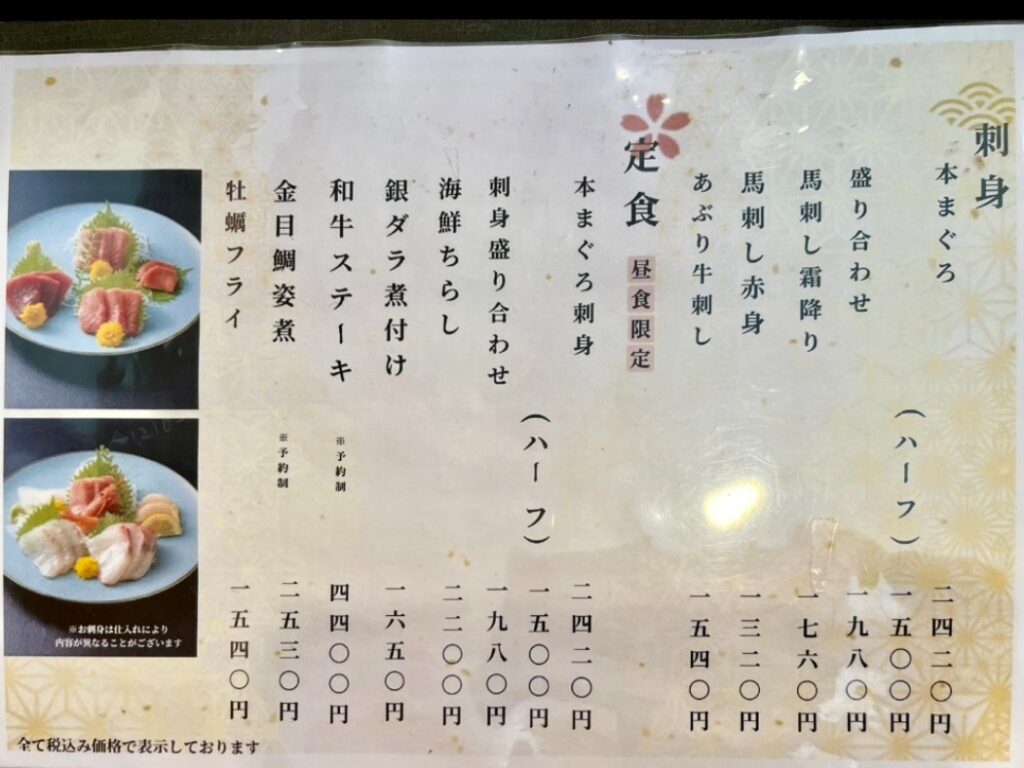 刺身
本まぐろ 二四二〇円
(ハーフ) 一五〇〇円
盛り合わせ 一九八〇円
馬刺し霜降り 一七六〇円
馬刺し赤身 一三二〇円
あぶり牛刺し 一五四〇円
定食 昼食限定
本まぐろ刺身 二四二〇円
(ハーフ) 一五〇〇円
刺身盛り合わせ 一九八〇円
海鮮ちらし 二二〇〇円
銀ダラ煮付け 一六五〇円
和牛ステーキ ※予約制 四四〇〇円
金目鯛姿煮 ※予約制 二五三〇円
牡蠣フライ 一五四〇円
※お刺身は仕入れにより
内容が異なることがございます
全て税込み価格で表示しております